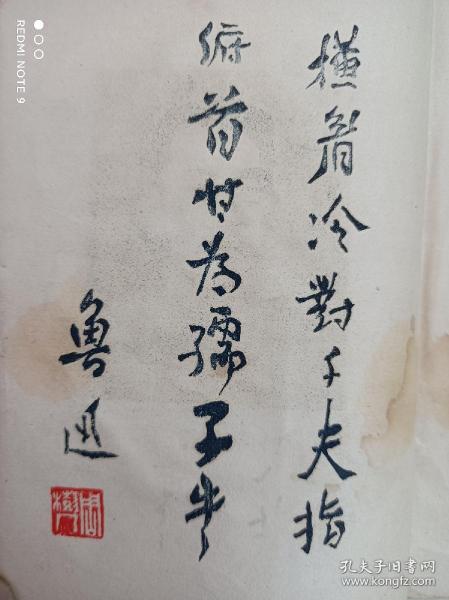 橫眉冷對千夫指
俯首甘為孺子牛
魯迅
周樹
REDMI NOTE 9
孔夫子旧书网
www.kongfz.com